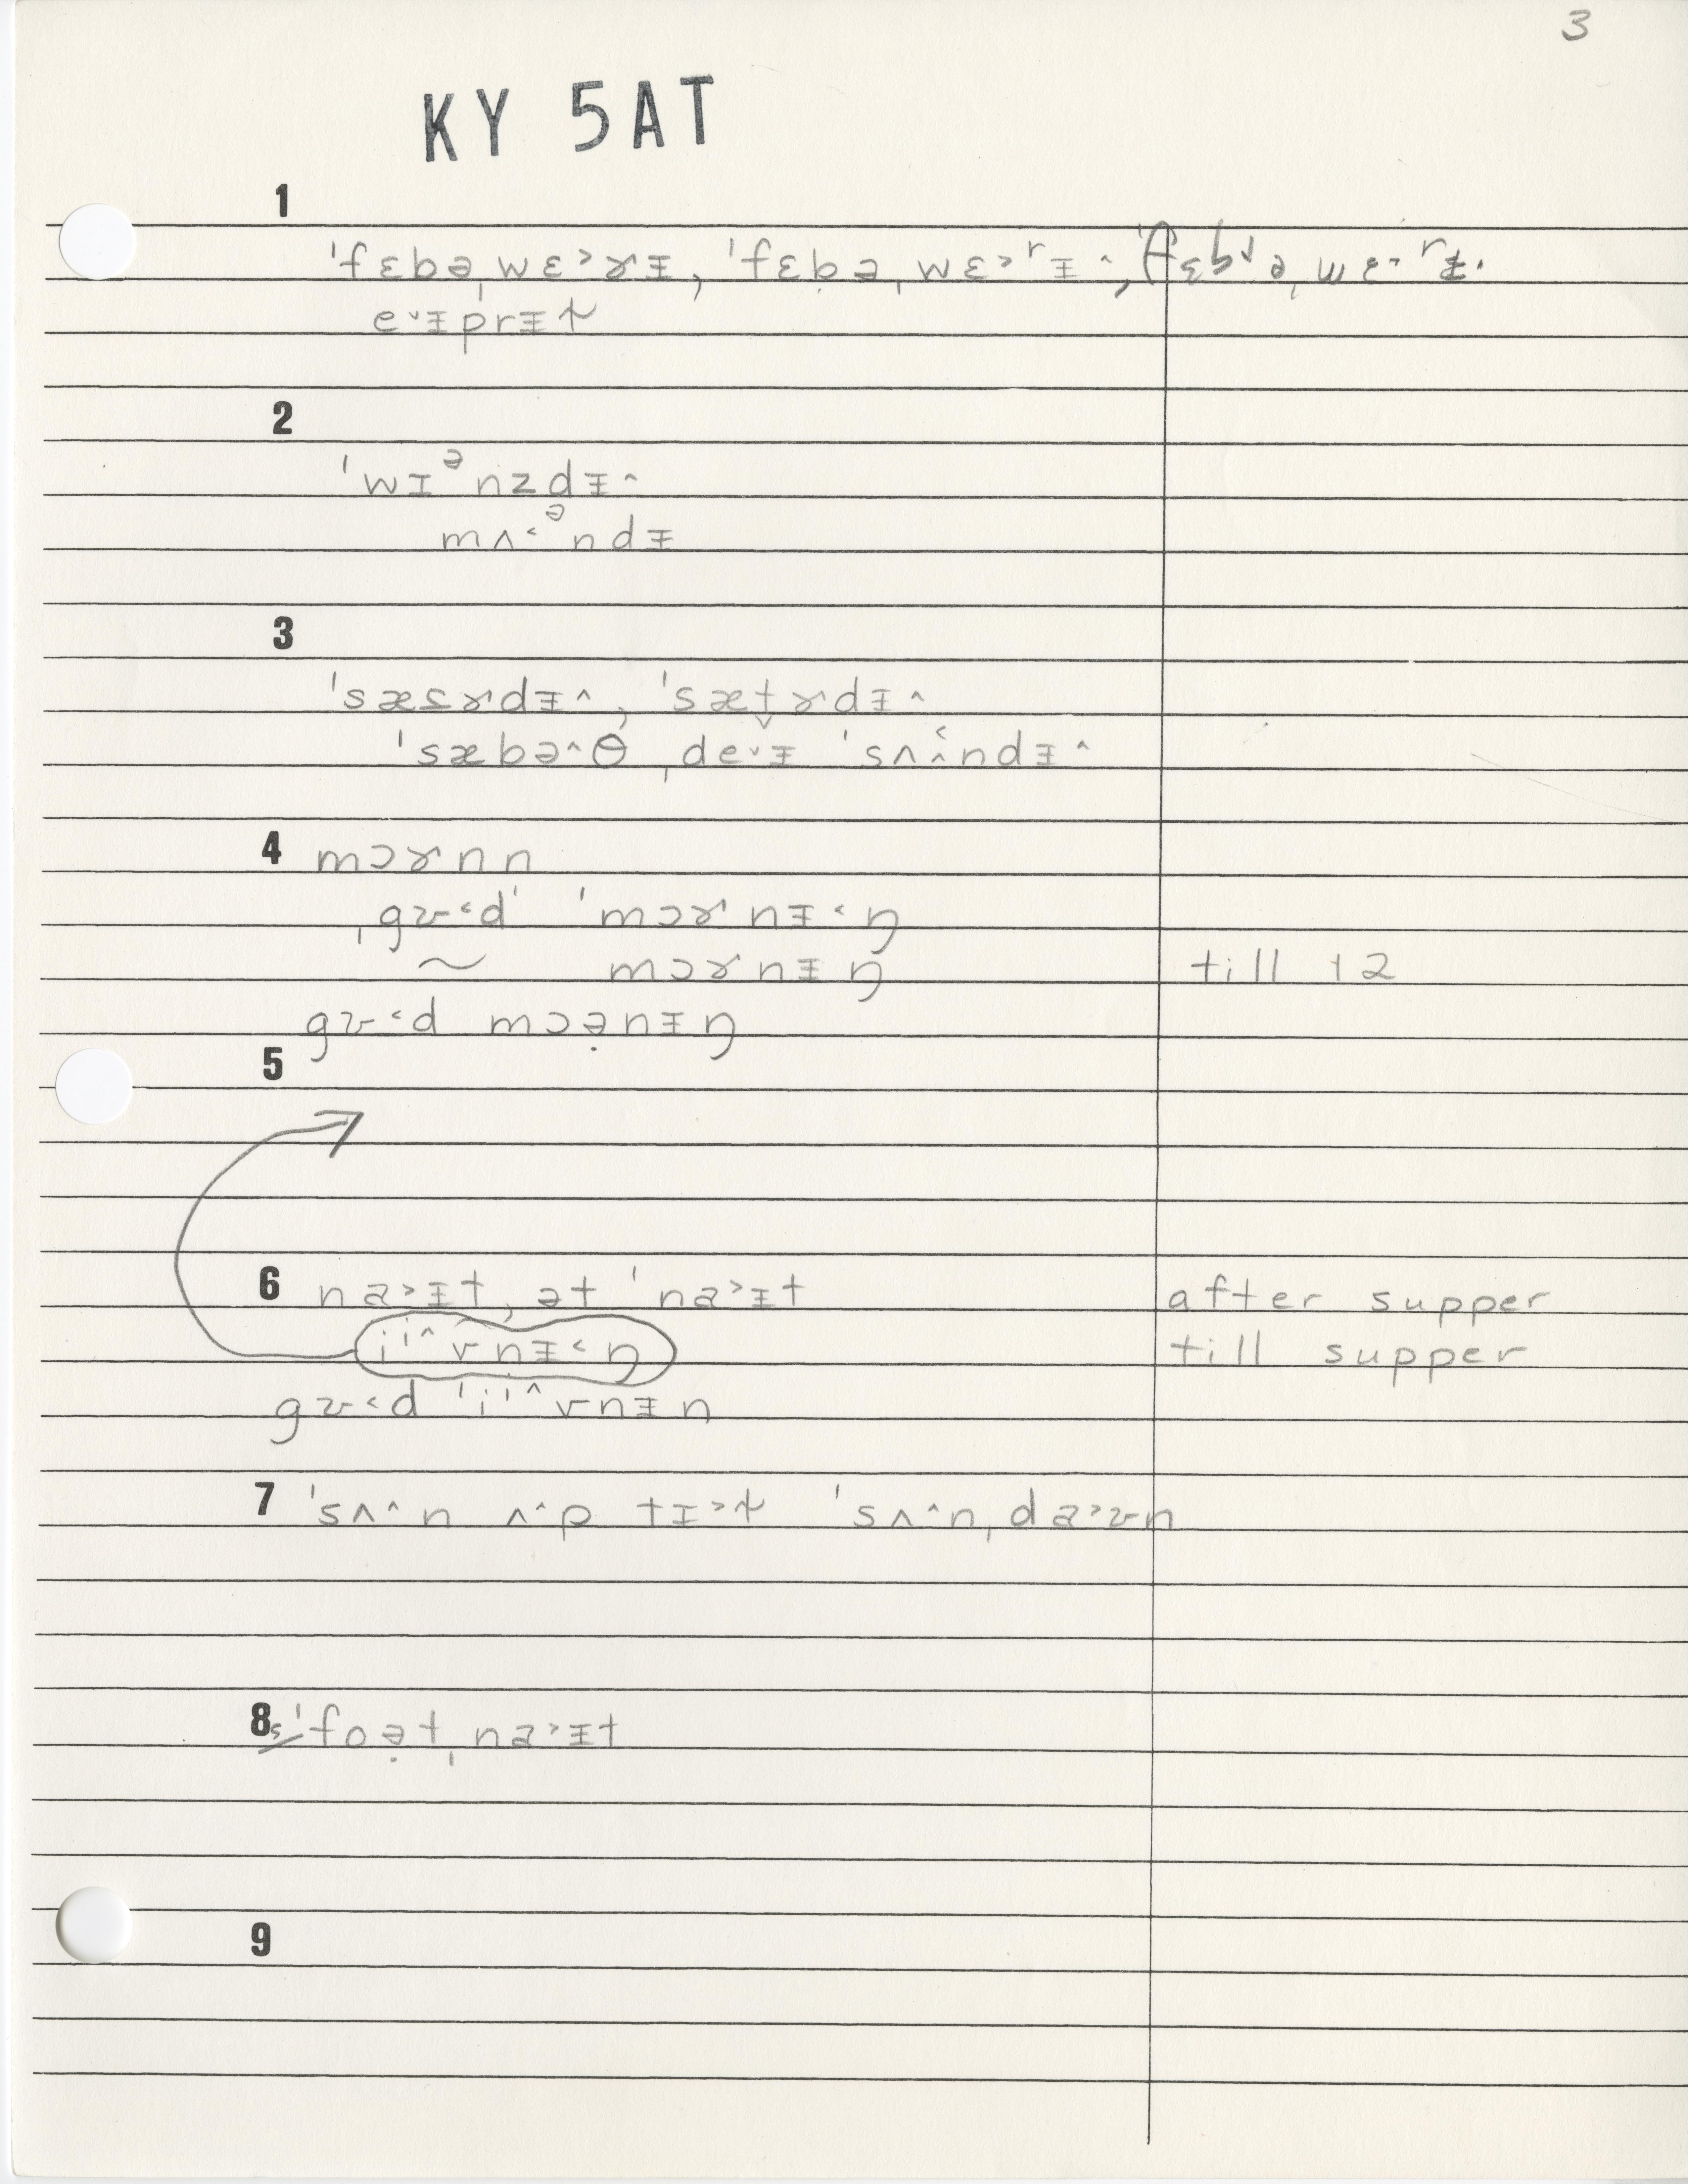 3
KY 5AT
1
ˈfɛbəˌwɛ˃ɤᵻ, ˈfɛbəˌwɛ˃rᵻ˄,
e˅ᵻprᵻɫ
2
ˈwɪᵊnzdᵻ˄
mʌ˂ᵊndᵻ
3
ˈsæsɤdᵻ˄, ˈsæt̬ɤdᵻ˄
ˈsæbə˄θˌde˅ᵻ ˈsʌ˄ndᵻ˄
4 mɔɤnn
ˌgʊ˂d ˈmɔɤnᵻ˂ŋ
~ mɔɤnᵻŋ till 12
gʊ˂d mɔə̣nᵻŋ
5
6 na˃ᵻt, ət ˈna˃ᵻt after supper
iⁱ˄vnᵻ˂ŋ till supper
gʊ˂d ˈiⁱ˄vnᵻn
7 ˈsʌ˄n ʌ˄p tɪ˃ɫ ˈsʌ˄nˌda˃ʊn
8 ˈfoə̣tˌna˃ᵻt
9